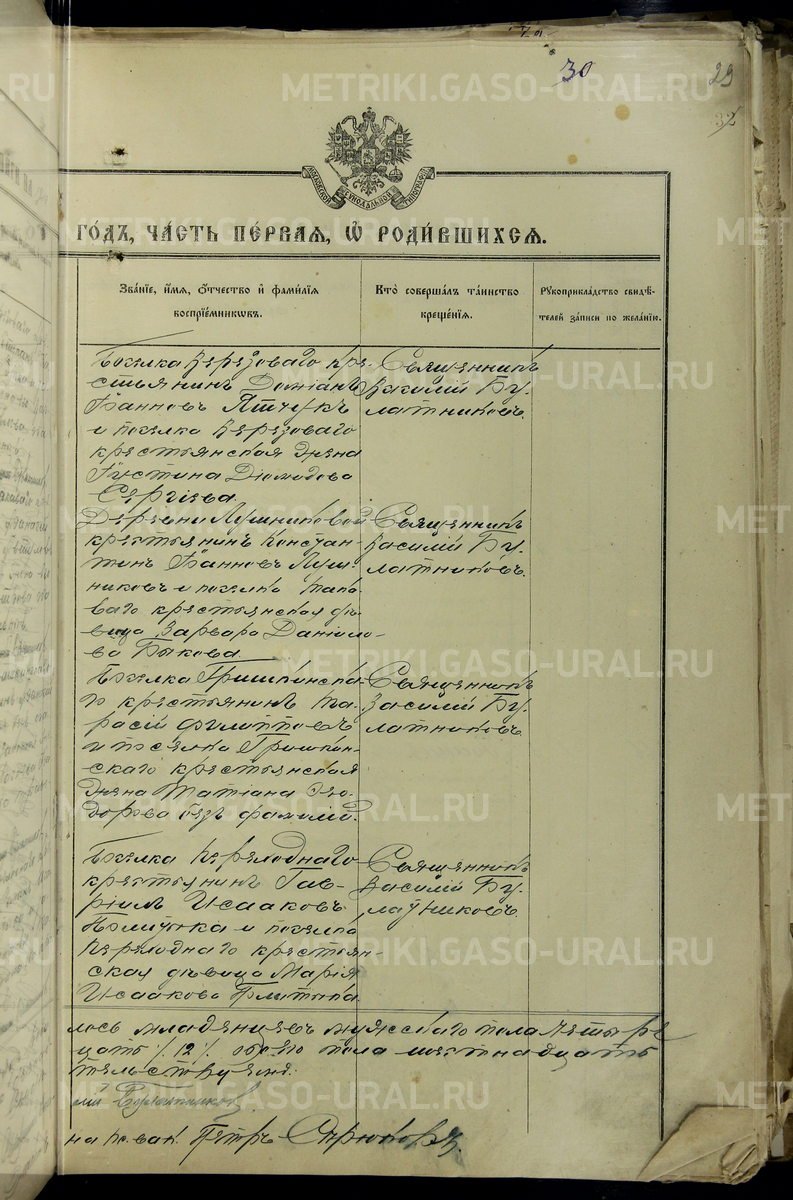 30
29
32
МОСКОВСКОЙ СѴНОДАЛЬНОЙ ТИПОГРАФІИ
ГО́ДЪ, ЧА́СТЬ ПЕ́РВАЯ, Ѡ҆ РОДИ́ВШИХСЯ.
Зва́нїе, и҆́мѧ, ѻ҆́тчество и҆ фами́лїѧ
воспрїе́мникѡвъ.
Кто̀ соверша́лъ та́инство
креще́нїѧ.
Рꙋкоприкла́дство свидѣ́-
телей за́писи по жела́нїю.
Поселка Березоваго кре-
стьянинъ Даміанъ
Іанновъ Ятчукъ
и поселка Березоваго
крестьянская жена
Іустина Діомидова
Сергіева
Священникъ
Василій Бу-
латниковъ.
Деревни Лушниковой
крестьянинъ Констан-
тинъ Іанновъ Луш-
никовъ и поселка
ваго крестьянская дѣ-
вица Варвара Даніило-
ва Быкова
Священникъ
Василій Бу-
латниковъ.
Поселка Гришкинска-
го крестьянинъ Та-
расій Филипповъ
и поселка Гришкин-
скаго крестьянская
жена Татіана Ѳео-
дорова безъ фамиліи.
Священникъ
Василій Бу-
латниковъ
Поселка
крестьянинъ Гав-
ріилъ Исааковъ
и поселка
крестьян-
ская дѣвица Марія
Исаакова
Священникъ
Василій Бу-
латниковъ
лось младенцевъ мужскаго пола четыре
цать /. 12 /. обоего пола шестнадцать
тельствуемъ:
лій Булатниковъ.
Петръ
METRIKI.GASO-URAL.RU